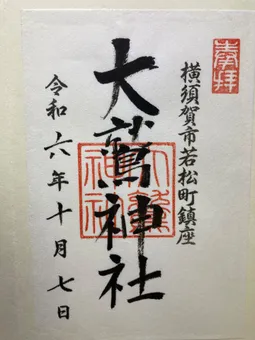 奉拝
横須賀市若松町鎮座
大鷲神社
令和六年十月七日